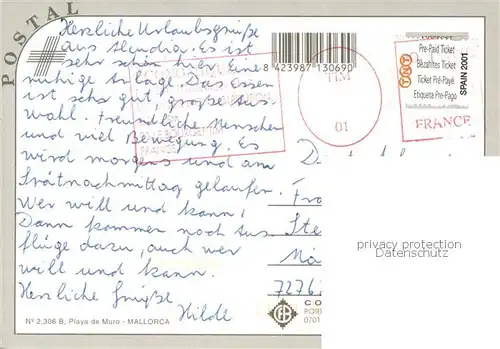 POSTAL
Herzliche Urlaubsgrüße
aus Alcudia. Es ist
sehr schön hier. Eine
ruhige Anlage. Das Essen
ist sehr gut, große Aus
wahl. Freundliche Menschen
und viel Bewegung. Es
wird morgens und am
Spätnachmittag gelaufen.
Wer will und kann!
Dann kommen noch Aus
flüge dazu, auch wer
will und kann.
Herzliche Grüße
Hilde
Nº 2.306 B, Playa de Muro - MALLORCA
8 423987 130690
TIM
01
Pre-Paid Ticket
Bezahltes Ticket
Ticket Pré-Payé
Etiqueta Pre-Pago
TNT
SPAIN 2001
FRANCE
Fra
Ste
Mä
7276
CO
POR
0701
privacy protection
Datenschutz